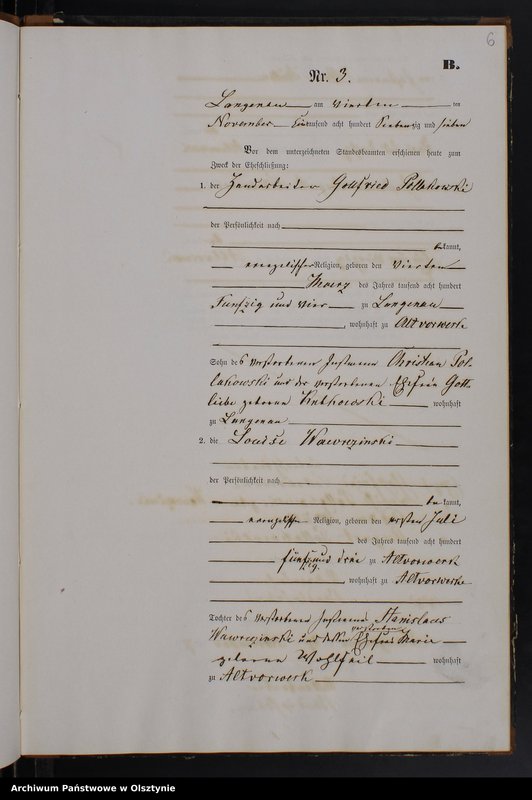 6
B.
Nr. 3.
Langenau am vierten ten
November tausend acht hundert Sieben zig und sieben
Vor dem unterzeichneten Standesbeamten erschienen heute zum
Zweck der Eheschließung:
1. der Handarbeiter Gottfried Pollakowski
der Persönlichkeit nach
bekannt,
evangelischer Religion, geboren den vierten
Maerz des Jahres tausend acht hundert
Funfzig und vier zu Langenau
, wohnhaft zu Altvorwerk
Sohn des verstorbenen Instmann Christian Pol-
lakowski und der verstorbenen Ehefrau Gott-
liebe geborene wohnhaft
zu Langenau
2. die Louise Wawrzinski
der Persönlichkeit nach
be kannt,
evangelischer Religion, geboren den ersten Juli
des Jahres tausend acht hundert
fünfzig und drei zu Altvorwerk
, wohnhaft zu Altvorwerk
Tochter des verstorbenen Instmann Stanislaus
Wawrzinski und dessen verstorbenen Ehefrau Marie
geborene Wohlfeil wohnhaft
zu Altvorwerk
Archiwum Państwowe w Olsztynie